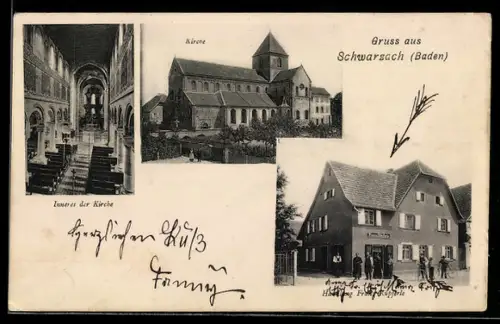 Kirche
Gruss aus
Schwarzach (Baden)
Inneres der Kirche
Herzlichen Gruß
Fanny
Handlung Franz